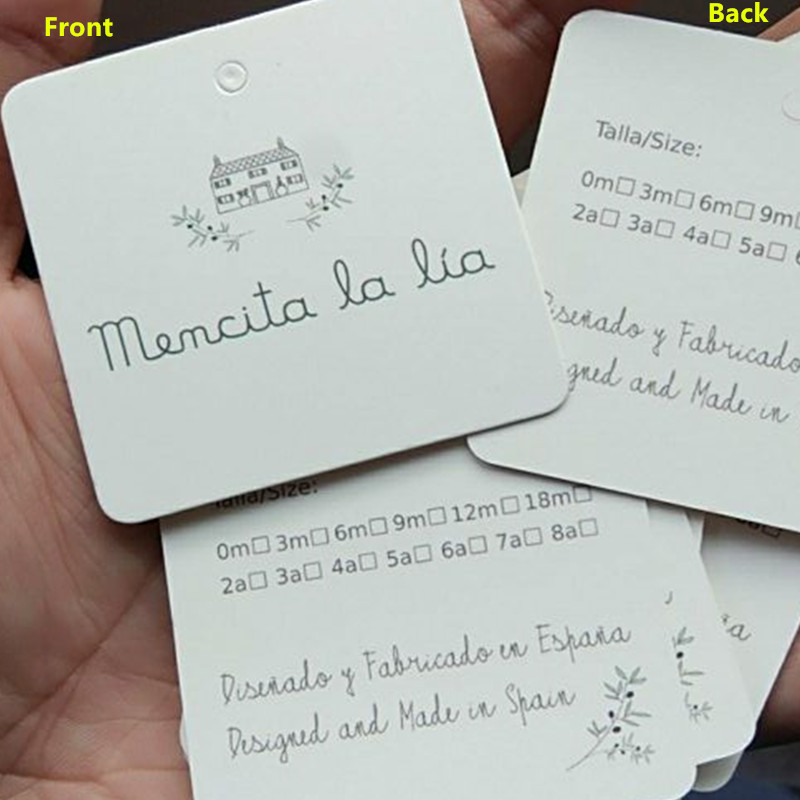 Front
Back
Mencita la lía
Talla/Size:
0m□ 3m□ 6m□ 9m□
2a□ 3a□ 4a□ 5a□
Diseñado y Fabricado
and Made in
Talla/Size:
0m□ 3m□ 6m□ 9m□ 12m□ 18m□
2a□ 3a□ 4a□ 5a□ 6a□ 7a□ 8a□
Diseñado y Fabricado en España
Designed and Made in Spain